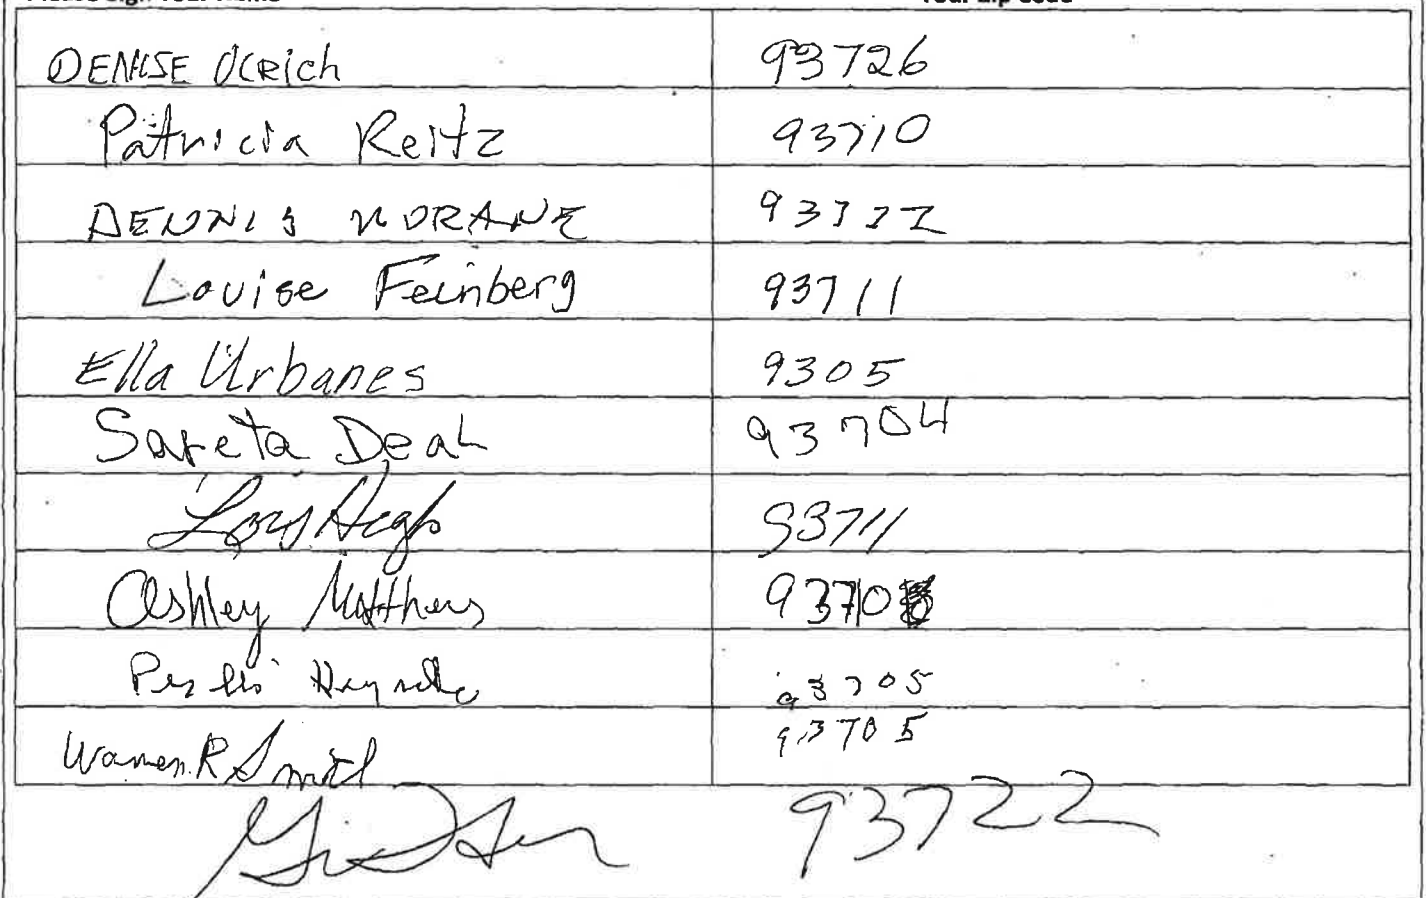 DENISE Ulrich 93726
Patricia Reitz 93710
DENNIS MORANE 93722
Louise Feinberg 93711
Ella Urbanes 9305
Sareta Deal 93704
Lois 93711
Ashley Matthews
93705
Warren R Smith 93705
93722